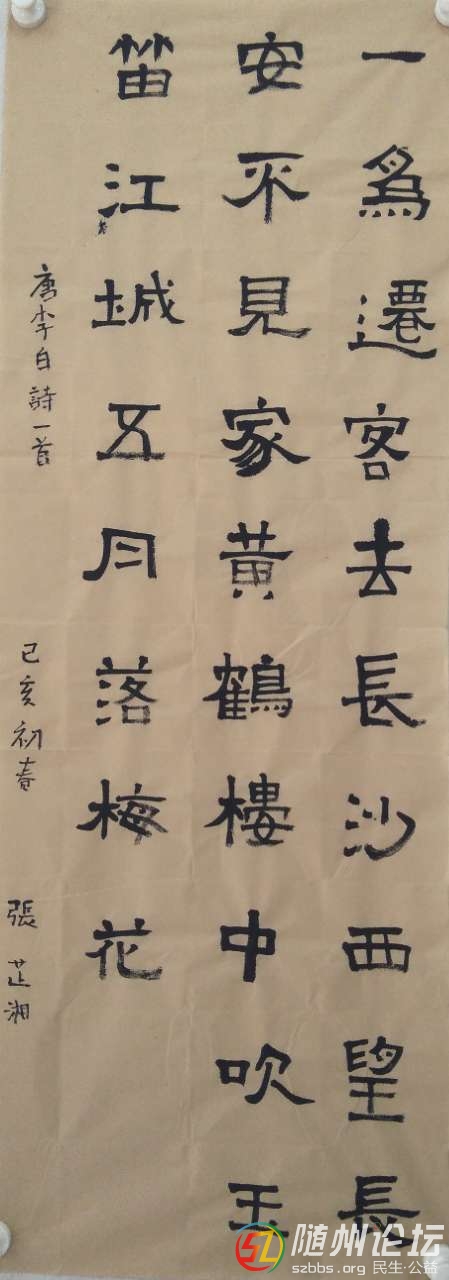 一爲遷客去長沙西望長
安不見家黄鶴樓中吹玉
笛江城五月落梅花
唐李白詩一首
己亥初春
張芷湘
随州论坛
szbbs.org 民生·公益